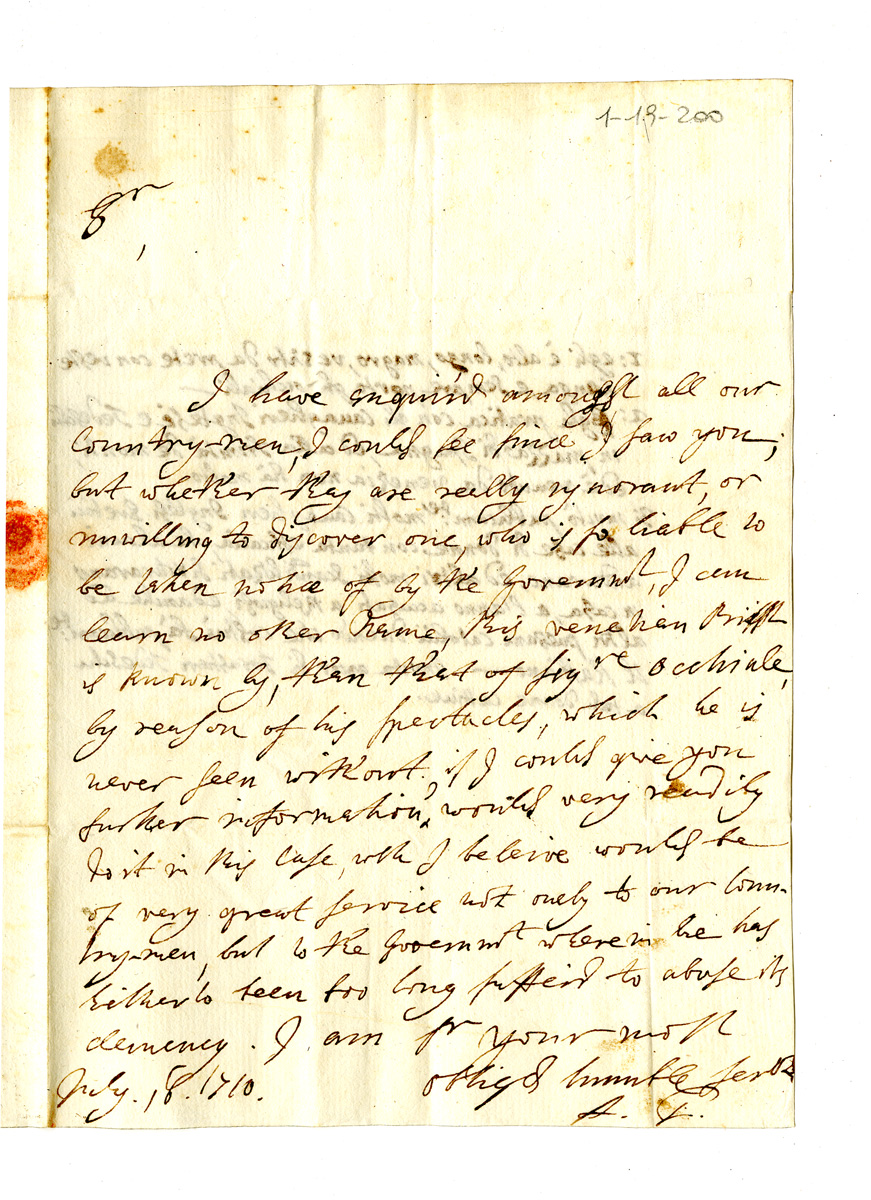 1-19-200
Sr,
I have enquir'd amongst all our
Country-men, I could see since I saw you;
but whether they are really ignorant, or
unwilling to discover one, who is so liable to
be taken notice of by the Governmt, I can
learn no other Name, this venetian Priest
is known by, than that of Sigre Occhiale,
by reason of his spectacles, which he is
never seen without. if I could give you
further information, would very readily
do it in this Case, wch I beleive would be
of very great service not onely to our Coun-
try-men, but to the Governmt wherein he has
hitherto been too long suffer'd to abuse its
clemency. I am Sr your most
July. 18. 1710. obliged humble servt
A.